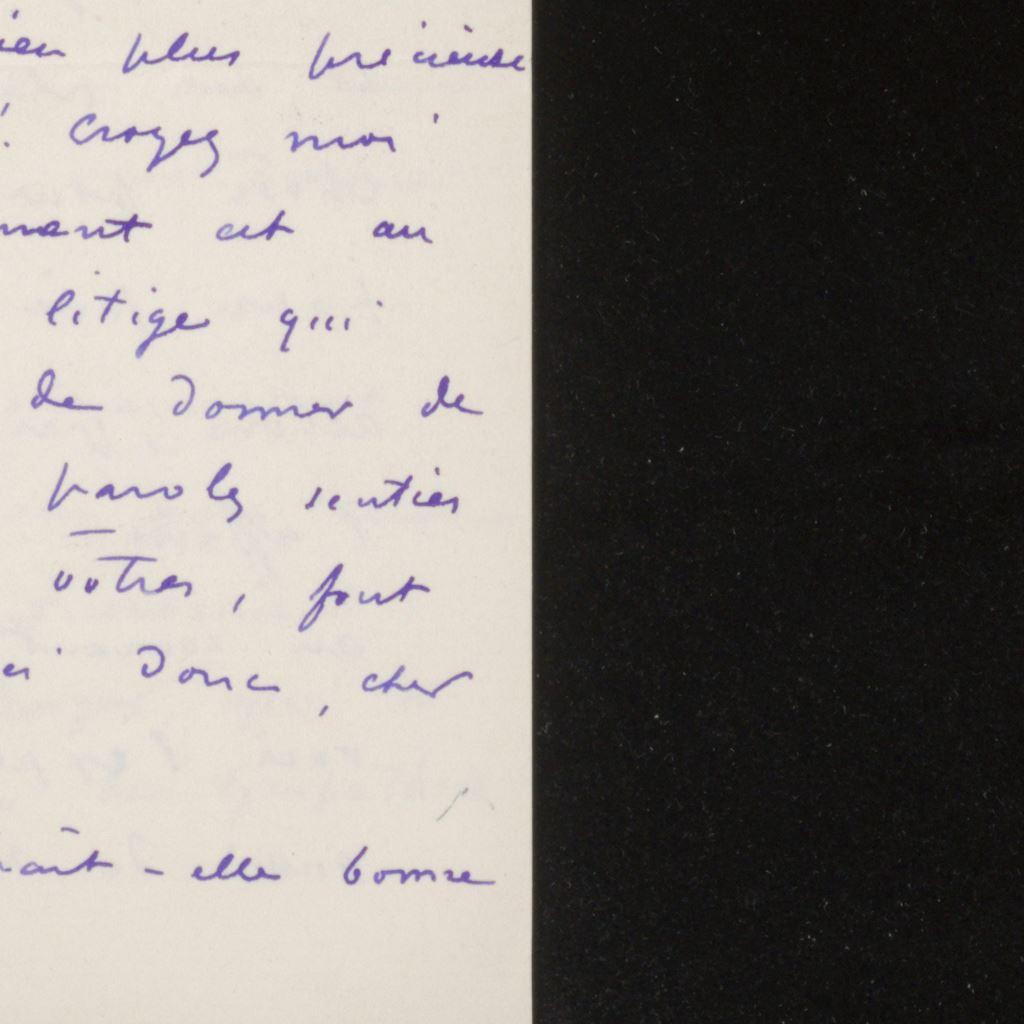 plus précieuse
! Croyez moi
cet au
litige qui
de donner de
paroles senties
vôtres, font
donc, cher
- elle bonne